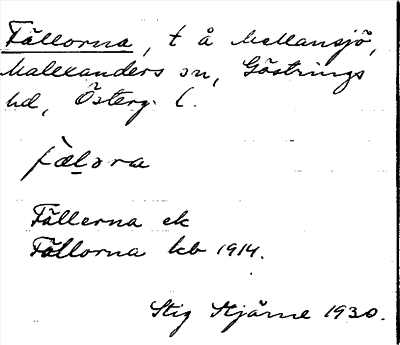 Fällorna, t å Mellansjö,
Malexanders sn, Göstrings
hd, Österg. l.
fæl̲ɔra
Fällerna ek
Fällorna kb 1914.
Stig Stjärne 1930.